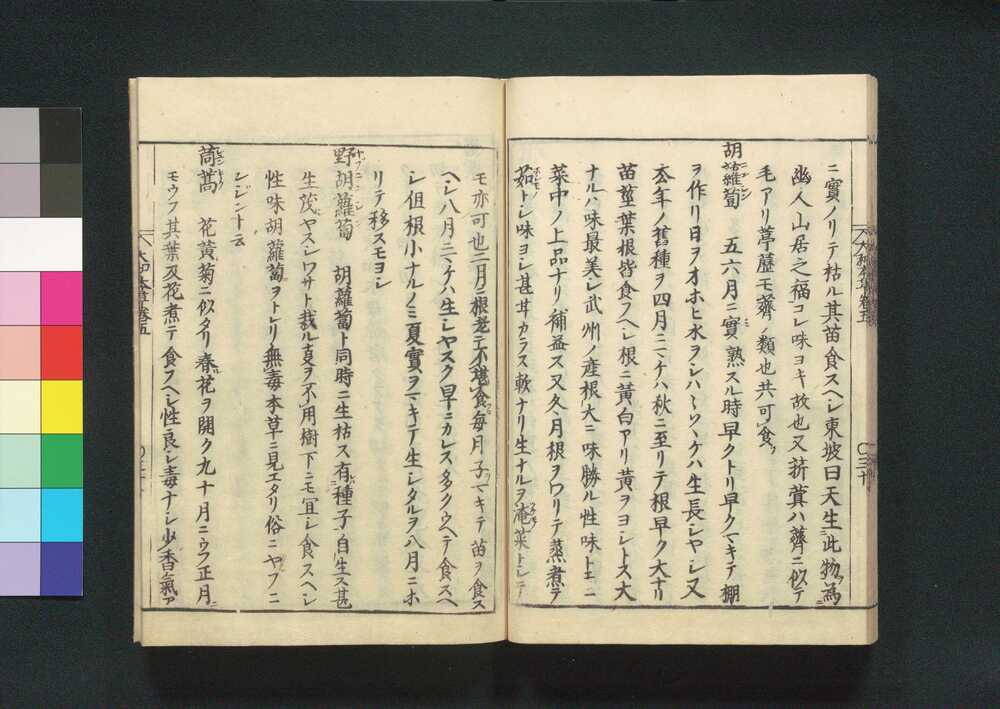 ニ實ノリテ枯ル其苗食スヘシ東坡曰天生此物為
幽人山居之福コレ味ヨキ故也又菥蓂ハ薺ニ似テ
毛アリ葶藶モ薺ノ類也共可食
胡蘿蔔 五六月ニ實熟スル時早クトリ早クマキテ棚
ヲ作リ日ヲオホヒ水ヲシハ〱ソヽケハ生長シヤシ又
去年ノ舊種ヲ四月ニマケハ秋ニ至リテ根早ク大ナリ
苗莖葉根皆食フヘシ根ニ黄白アリ黄ヲヨシトス大
ナルハ味最美シ武州ノ産根大ニ味勝ル性味トモニ
菜中ノ上品ナリ補益ス又冬月根ヲワリテ蒸煮テ
茹トシ味ヨシ甚甘カラス軟ナリ生ナルヲ淹菜トシテ
モ亦可也二月ニ根老テ不堪食毎月子マキテ苗ヲ食ス
ヘシ八月ニマケハ生シヤスク早ニカレス多クウヘテ食スヘ
シ但根小ナルノミ夏實ヲマキテ生シタルヲ八月ニホ
リテ移スモヨシ
野胡蘿蔔 胡蘿蔔ト同時ニ生枯ス有種子自生ス甚
生茂ヤスシワサト栽ル夏ヲ不用樹下ニモ宜シ食スヘシ
性味胡蘿蔔ヲトレリ無毒本草ニ見エタリ俗ニヤフニ
ンジント云
茼蒿 花黄菊ニ似タリ春花ヲ開ク九十月ニウフ正月ニ
モウフ其葉及花煮テ食フヘシ性良シ毒ナシ少香氣ア
大和本草卷五